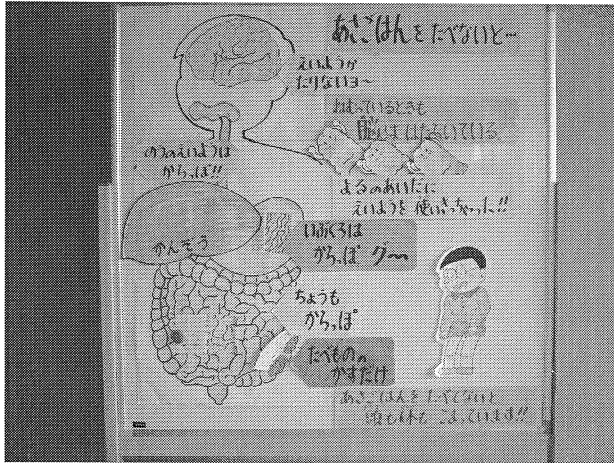 あさごはんをたべないと…
えいようが
たりないヨ～
ねむっているときも
脳ははたらいている
のうのえいようは
からっぽ!!
よるのあいだに
えいようを使いきっちゃった!!
かんぞう
いぶくろは
からっぽ グ～
ちょうも
からっぽ
たべものの
かすだけ
あさごはんをたべないと
脳も体もこまっています!!